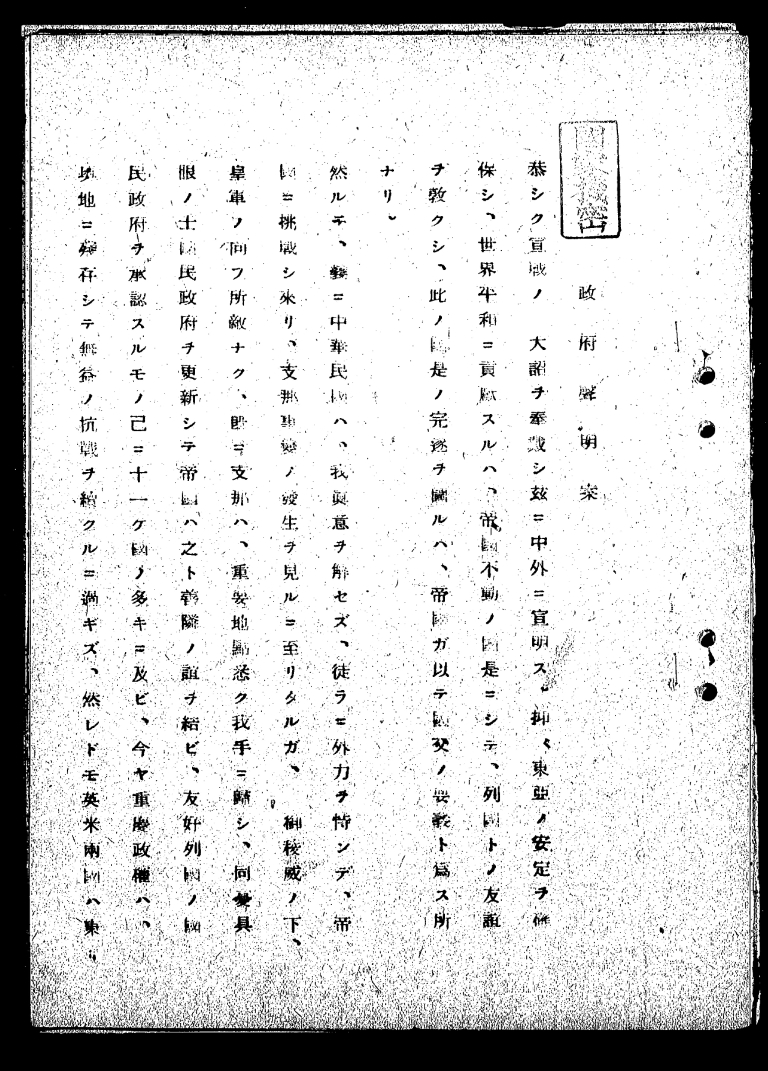 國家機密
政府聲明案
恭シク宣戰ノ　大詔ヲ奉戴シ茲ニ中外ニ宣明ス。抑〻東亞ノ安定ヲ確
保シ、世界平和ニ貢獻スルハ、帝國不動ノ國是ニシテ、列國トノ友誼
ヲ敦クシ、此ノ國是ノ完遂ヲ圖ルハ、帝國ガ以テ國交ノ要義ト爲ス所
ナリ。
然ルニ、曩ニ中華民國ハ、我眞意ヲ解セズ、徒ラニ外力ヲ恃ンデ、帝
國ニ挑戰シ來リ、支那事變ノ發生ヲ見ルニ至リタルガ、　御稜威ノ下、
皇軍ノ向フ所敵ナク、既ニ支那ハ、重要地點悉ク我手ニ歸シ、同憂具
眼ノ士國民政府ヲ更新シテ帝國ハ之ト善隣ノ誼ヲ結ビ、友好列國ノ國
民政府ヲ承認スルモノ已ニ十一ケ國ノ多キニ及ビ、今ヤ重慶政權ハ、
地ニ殘存シテ無益ノ抗戰ヲ續クルニ過ギズ、然レドモ英米兩國ハ東